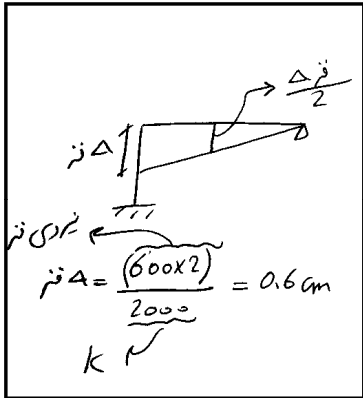 Δ فنر
2
Δ فنر
نیروی فنر
Δ فنر = (600x2) / 2000 = 0.6 cm
K